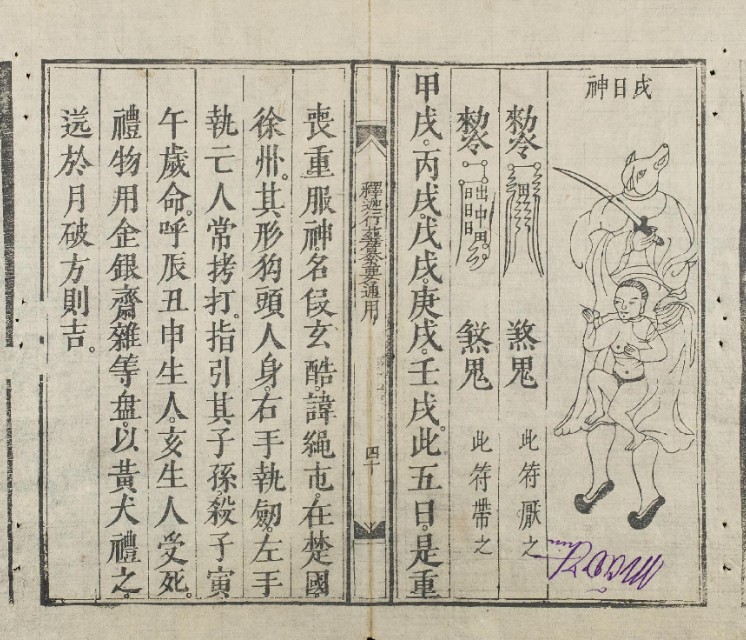 戌日神
勑令 煞鬼 此符厭之
勑令 煞鬼 此符帶之
甲戌。丙戌。戊戌。庚戌。壬戌。此五日。是重
釋迦行 要通用
四十
喪重服神。名 玄酷。諱繩屯。在楚國
徐州。其形狗頭人身。右手執劒。左手
執亡人常拷打。指引其子孫。殺子寅
午歲命。呼辰丑申生人。亥生人受死。
禮物用金銀齋雜等盘。以黄犬禮之。
送於月破方則吉。